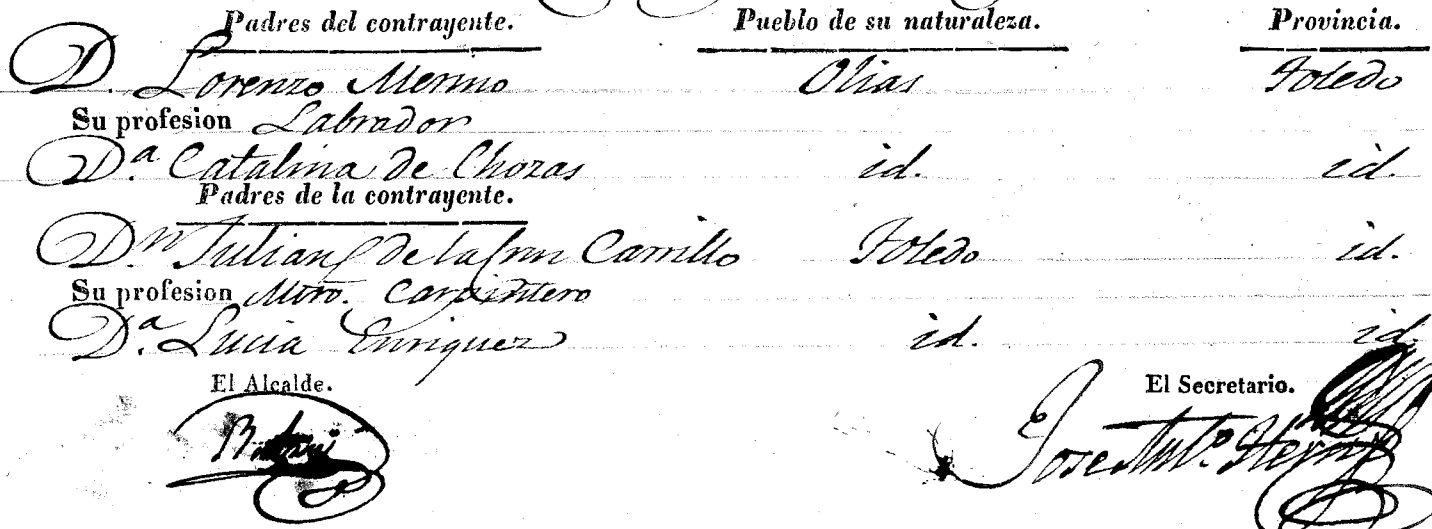 Padres del contrayente. Pueblo de su naturaleza. Provincia.
D. Lorenzo Merino Olias Toledo
Su profesion Labrador
D.ª Catalina de Chozas id. id.
Padres de la contrayente.
Dn Julian de la Cruz Carrillo Toledo id.
Su profesion Mtro. Carpintero
D.ª Lucia Enriquez id. id.
El Alcalde. El Secretario.
Jose Ant.º